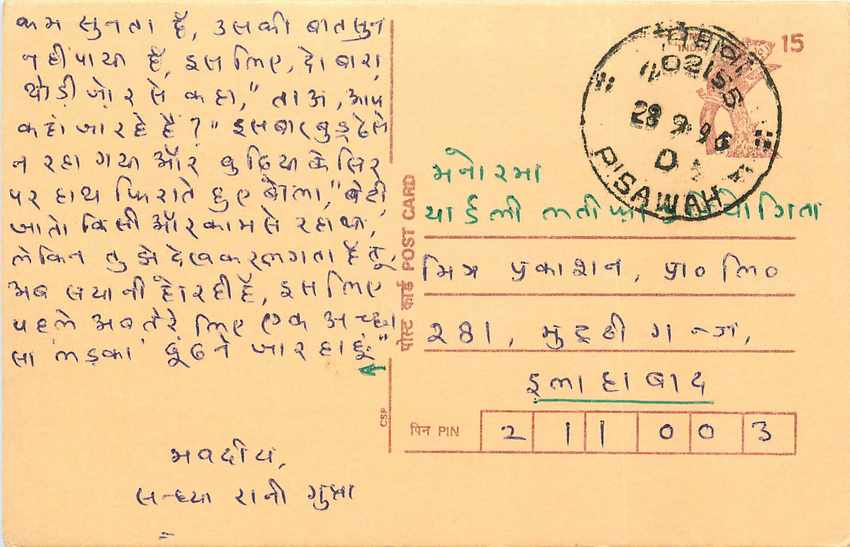 कम सुनता है, उसकी बात सुन
नही पाया है, इस लिए, दोबारा
थोडी जोर से कहा," ताऊ, आप
कहां जा रहे हैं ?" इसबार बुड्ढे से
न रहा गया और बुढिया के सिर
पर हाथ फिराते हुए बोला,"बेटी
जातो किसी और काम से रहा था,
लेकिन तुझे देखकर लगता है तू,
अब सयानी हो रही है, इस लिए
पहले अब तेरे लिए एक अच्छा
सा लड़का ढूंढने जा रहा हूं"
भवदीय,
सन्ध्या रानी गुप्ता
पोस्ट कार्ड POST CARD
CSP
INDIA 15
202155
28 9 95
PISAWAH
मनोरमा
यार्डली लतीफा प्रतियोगिता
मित्र प्रकाशन, प्रा० लि०
281, मुट्ठी गन्ज,
इलाहाबाद
पिन PIN 2 1 1 0 0 3